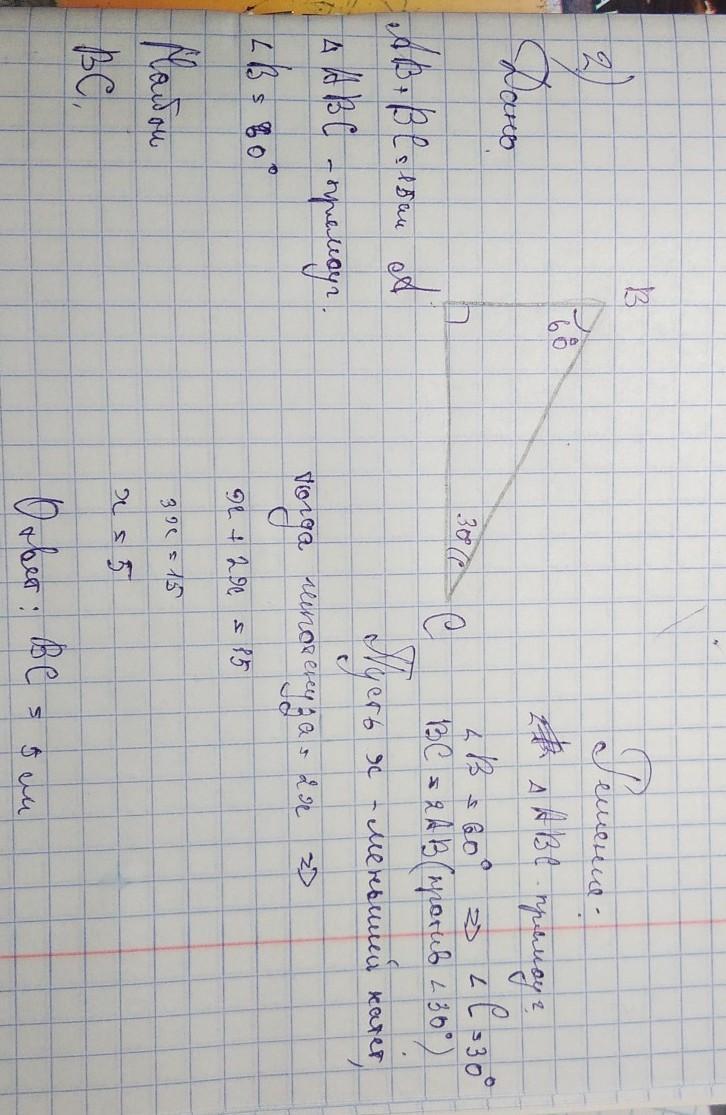 2)
Дано:
AB + BC = 15 см
△ ABC - прямоуг.
∠B = 60°
Найти
BC.
B
60°
A
30°
C
Решение:
△ ABC - прямоуг.
∠B = 60° ⇒ ∠C = 30°
BC = 2AB (против ∠30°)
Пусть x - меньший катет,
тогда гипотенуза = 2x ⇒
x + 2x = 15
3x = 15
x = 5
Ответ: BC = 5 см